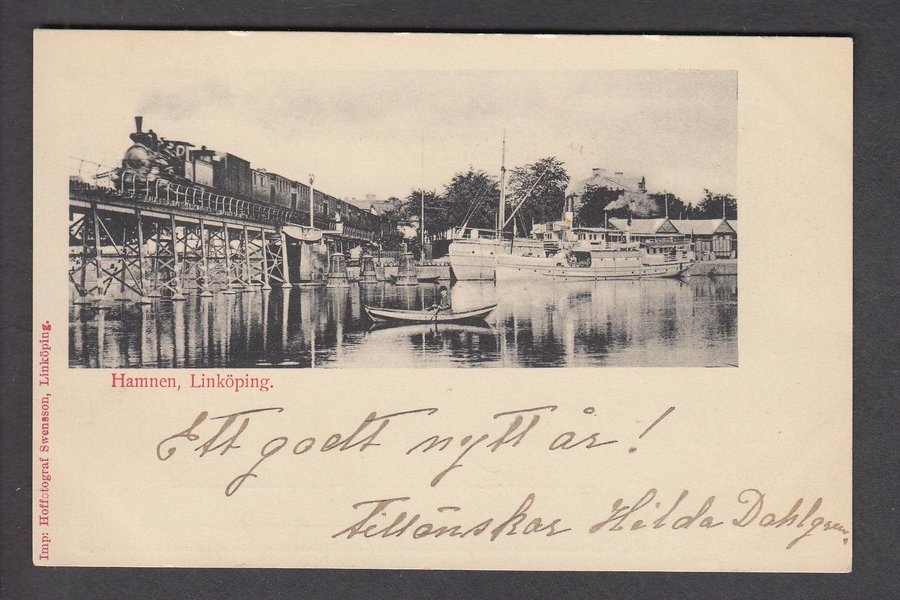 Hamnen, Linköping.
Ett godt nytt år!
tillönskar Hilda Dahlgren.
Imp: Hoffotograf Swensson, Linköping.